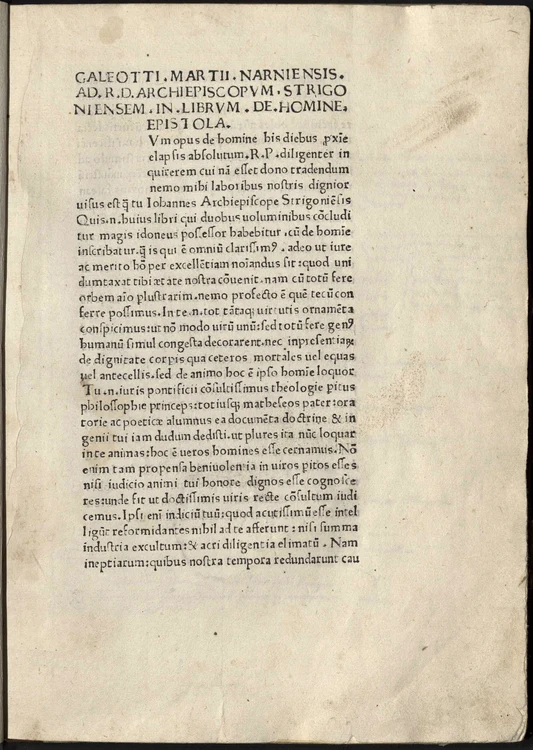 GALEOTTI . MARTII . NARNIENSIS .
AD . R . D . ARCHIEPISCOPVM . STRIGO
NIENSEM . IN . LIBRVM . DE . HOMINE .
EPISTOLA .
Vm opus de homine his diebus ꝓxīe
elapsis absolutum . R . P . diligenter in
quirerem cui nā esset dono tradendum
nemo mihi laboribus nostris dignior
uisus est q̄ tu Iohannes Archiepiscope Strigoniēsis
Quis . n . huius libri qui duobus uoluminibus cōcludi
tur magis idoneus possessor habebitur . cū de homīe
inscribatur . q̄ is qui ē omniū clarissimꝰ . adeo ut iure
ac merito hō per excellētiam noīandus sit : quod uni
dumtaxat tibi ætate nostra cōuenit . nam cū totū fere
orbem aīo plustrarim . nemo profecto ē quē tecū con
ferre possimus . In te . n . tot tātaq; uirtutis ornamēta
conspicimus : ut nō modo uirū unū : sed totū fere genꝰ
humanū simul congesta decorarent . nec inpresentiaꝝ
de dignitate corpis qua ceteros mortales uel equas
uel antecellis . sed de animo hoc ē ipso homīe loquor
Tu . n . iuris pontificii cōsultissimus theologie pitus
philosophie princeps : totiusq; matheseos pater : ora
torie ac poeticæ alumnus ea documēta doctrine & in
genii tui iam dudum dedisti . ut plures ita nūc loquar
in te animas : hoc ē ueros homines esse cernamus . Nō
enim tam propensa beniuolentia in uiros pitos esses
nisi iudicio animi tui honore dignos esse cognosce
res : unde fit ut doctissimis uiris recte cōsultum iudi
cemus . Ipsi enī indiciū tuū : quod acutissimū esse intel
ligūt reformidantes nihil ad te afferunt : nisi summa
industria excultum : & acri diligentia elimatū . Nam
ineptiarum : quibus nostra tempora redundarunt cau